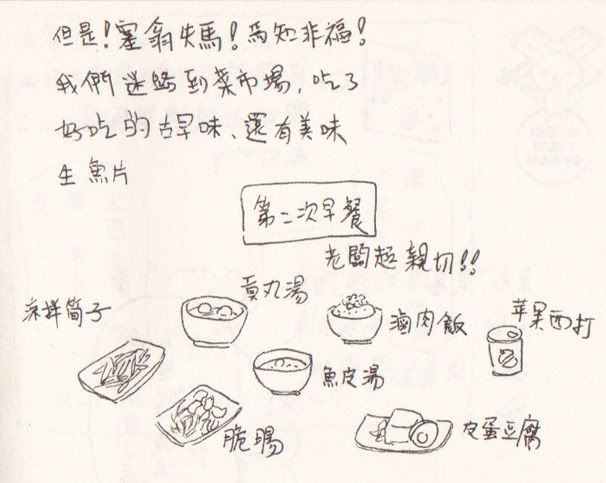 但是!塞翁失馬!焉知非福!
我們迷路到菜市場,吃了
好吃的古早味、還有美味
生魚片
第二次早餐
老闆超親切!!
涼拌筒子
貢丸湯
滷肉飯
苹果西打
魚皮湯
脆腸
皮蛋豆腐